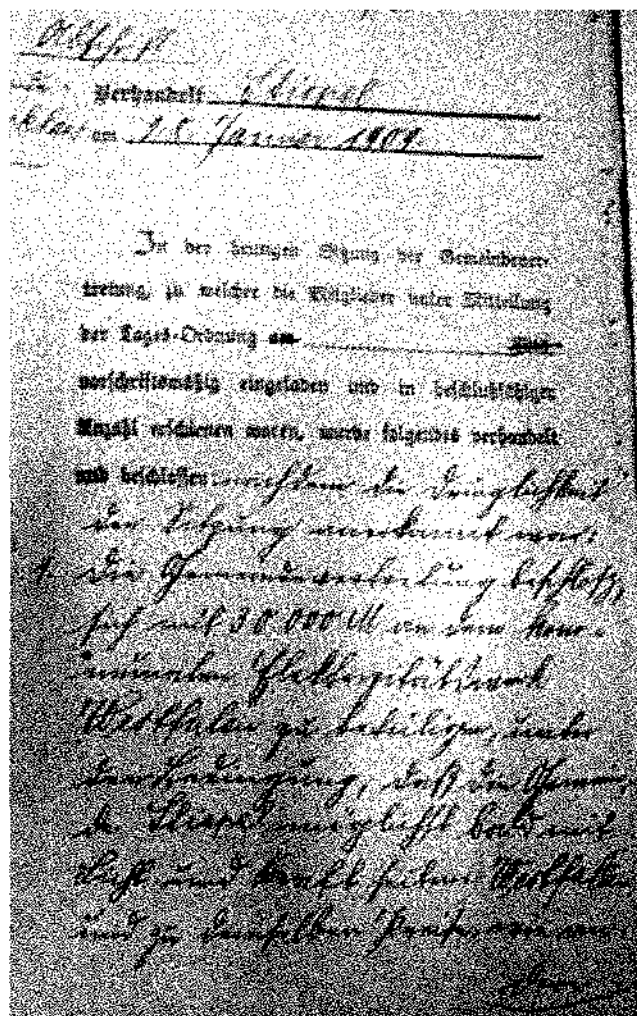 Verhandelt Stiepel
am 25. Januar 1909
In der heutigen Sitzung der Gemeindever-
tretung, zu welcher die Mitglieder unter Mitteilung
der Tages-Ordnung am
vorschriftsmäßig eingeladen und in beschlußfähiger
Anzahl erschienen waren, wurde folgendes verhandelt
und beschlossen: nachdem die Dringlichkeit
der Sitzung anerkannt war:
1. Die Gemeindevertretung beschloß,
sich mit 30 000 M an dem kom-
munalen Elektrizitätswerk
Westfalen zu beteiligen, unter
der Bedingung, daß die Gemein-
de Stiepel möglichst bald mit
Licht und Kraft seitens Westfalen
und zu demselben Preise, wie an